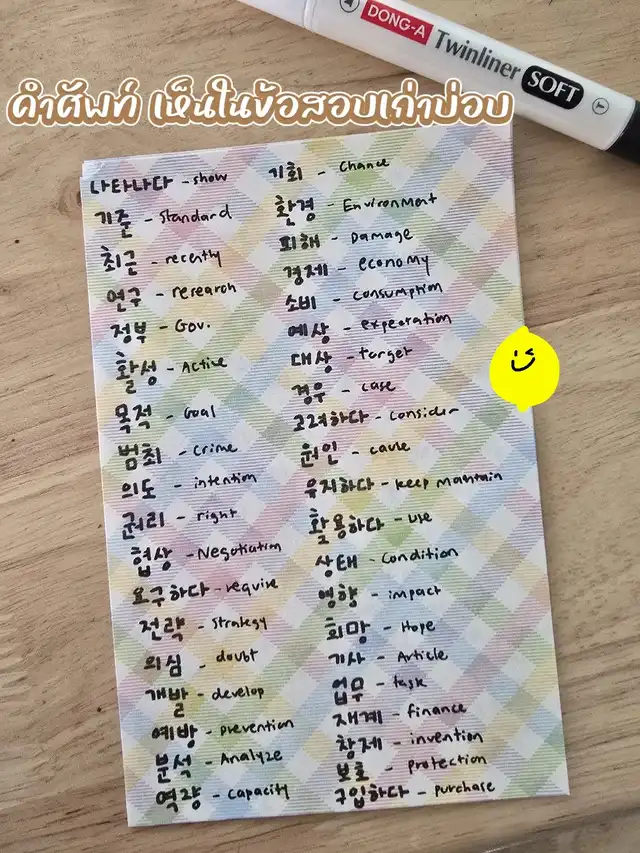 DONG-A Twinliner SOFT
คำศัพท์ เห็นในข้อสอบเก่าบ่อบ
나타나다 - show
기준 - Standard
최근 - recently
연구 - research
정부 - Gov.
활성 - Active
목적 - Goal
범죄 - crime
의도 - intention
권리 - right
협상 - Negotiation
요구하다 - require
전략 - Strategy
의심 - doubt
개발 - develop
예방 - prevention
분석 - Analyze
역량 - capacity
기회 - Chance
환경 - Environment
피해 - Damage
경제 - economy
소비 - consumption
예상 - expectation
대상 - target
경우 - case
고려하다 - consider
원인 - cause
유지하다 - keep maintain
활용하다 - use
상태 - Condition
영향 - impact
희망 - Hope
기사 - Article
업무 - task
재계 - finance
창제 - invention
보호 - protection
구입하다 - purchase